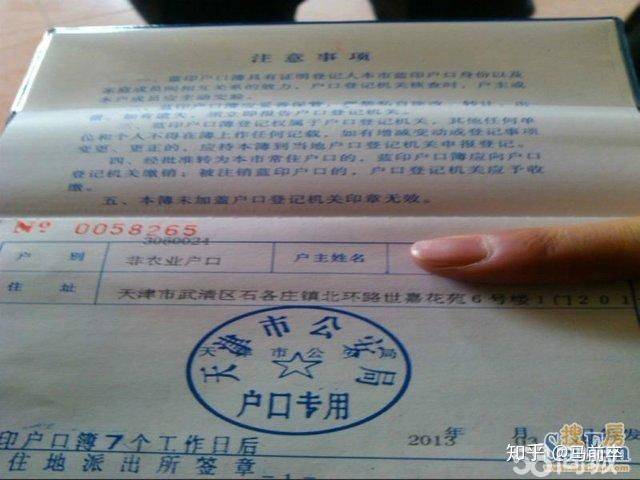 注意事项
一、蓝印户口簿具有证明登记人本市蓝印户口身份以及
家庭成员间相互关系的效力，户口登记机关核查时，户主或
本户成员应主动交验。
蓝印户口簿应妥善保管，严禁私自涂改、转让、出
借。如有遗失，须立即报告户口登记机关。
三、蓝印户口簿登记权属于户口登记机关，其他任何单
位和个人不得在簿上作任何记载，如有增减变动或登记事项
变更、更正的，应持本簿到当地户口登记机关申报登记。
四、经批准转为本市常住户口的，蓝印户口簿应向户口
登记机关缴销；被注销蓝印户口的，户口登记机关应予收
缴。
五、本簿未加盖户口登记机关印章无效。
№ 0058265
3080024
户别 非农业户口 户主姓名
住址 天津市武清区石各庄镇北环路世嘉花苑6号楼1门201
天津市公安局
天津市公安局
户口专用
2013年 月
印户口簿7个工作日后
住地派出所签章
-1-
搜房
知乎 @冯前生
58同城